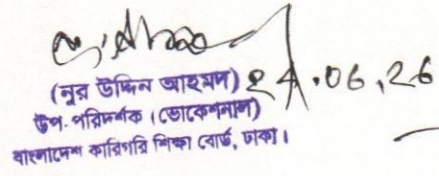 (নূর উদ্দিন আহমদ) ২৪.০৬.২৬
উপ-পরিদর্শক (ভোকেশনাল)
বাংলাদেশ কারিগরি শিক্ষা বোর্ড, ঢাকা।